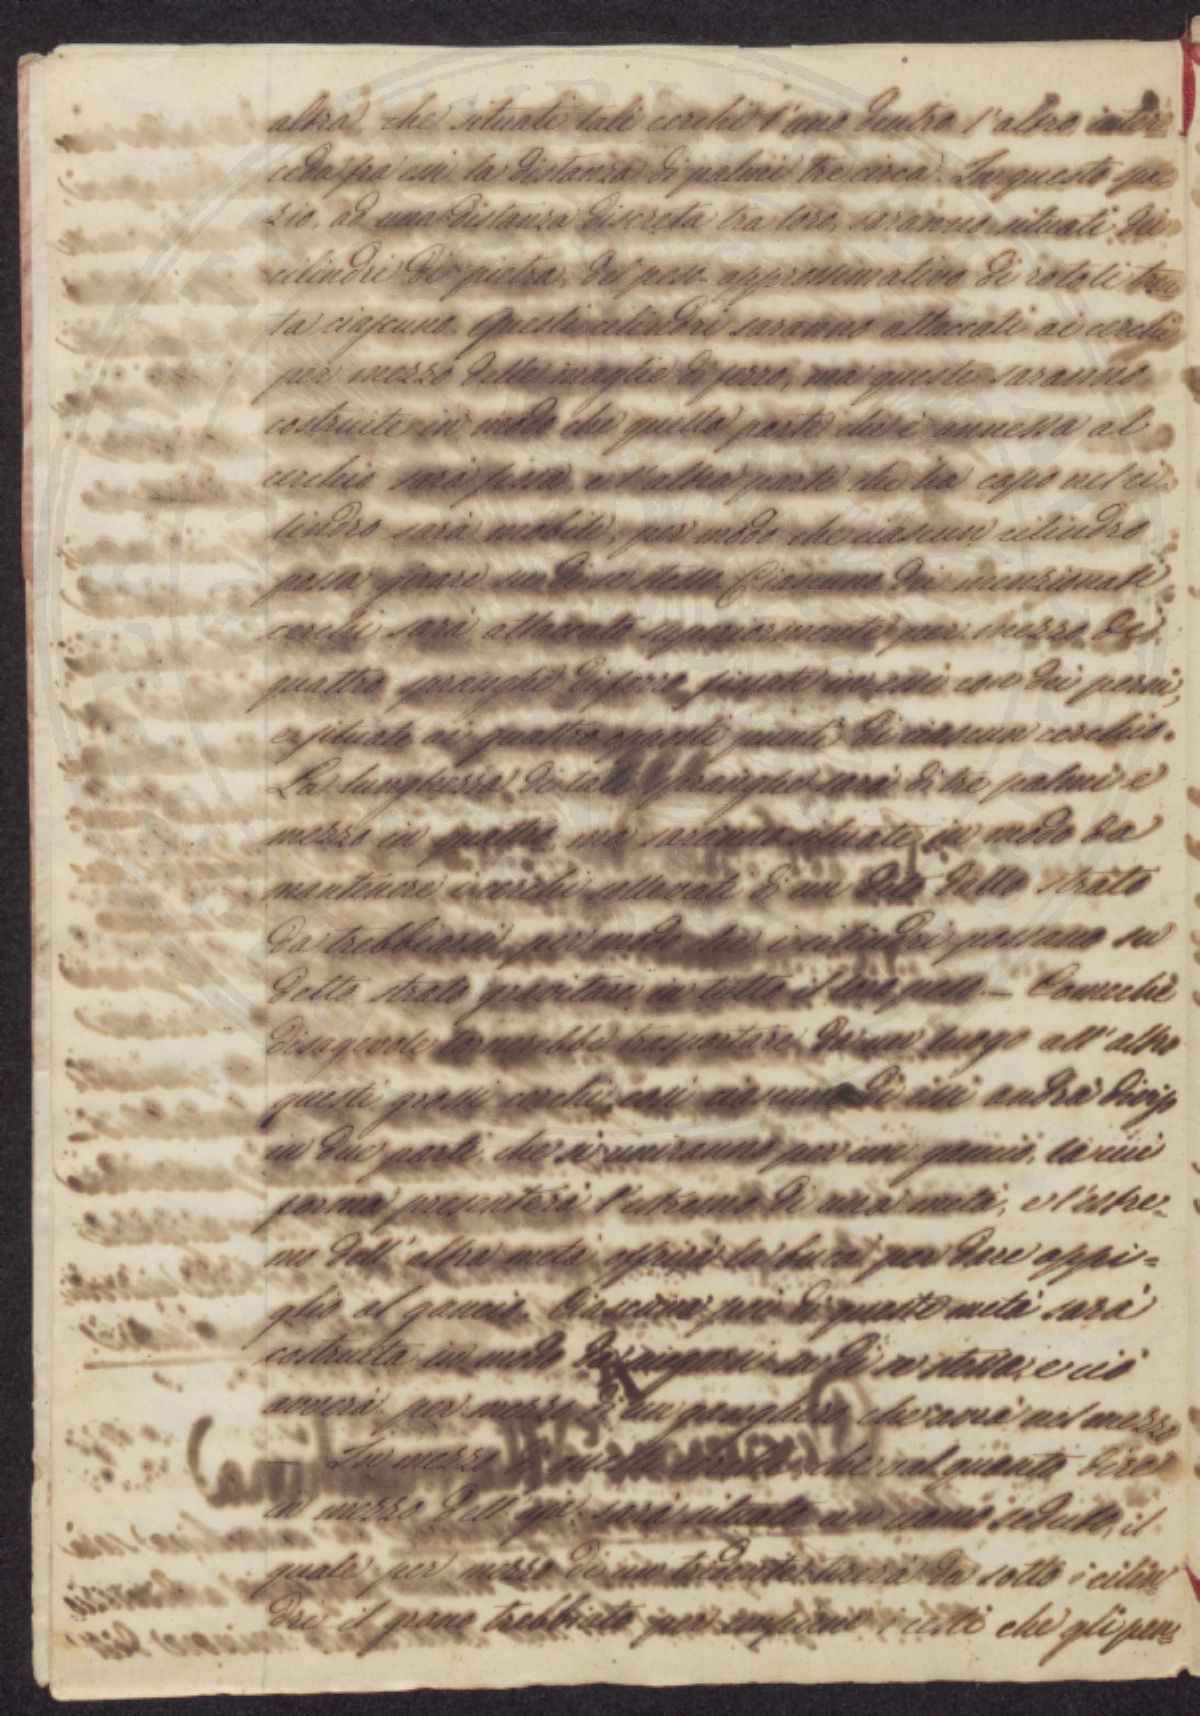 altra, che situati tali cerchi l'uno dentro l'altro inter=
ceda fra essi la distanza di palmi tre circa. In questo spa=
zio, ad una distanza discreta tra loro, saranno situati dei
cilindri di pietra, del peso approssimativo di rotoli tren=
ta ciascuno. Questi cilindri saranno attaccati ai cerchi
per mezzo delle maglie di ferro, ma queste saranno
costruite in modo che quella parte che è annessa al
cerchio sarà fissa, e l'altra parte che ha capo nel ci=
lindro sarà mobile, per modo che ciascun cilindro
possa girare su di se stesso. Ciascuno dei menzionati
cerchi sarà attaccato superiormente per mezzo di
quattro spranghe di ferro, fissate in essi con dei perni,
e situate ai quattro opposti punti di ciascun cerchio.
La lunghezza di tali spranghe sarà di tre palmi e
mezzo in quattro, ma saranno situate in modo da
mantenere i cerchi sollevati d'un dito dallo strato
da trebbiarsi, per modo che i cilindri possano su
detto strato gravitare in tutto il loro peso. — Comechè
disagevole tornerebbe trasportare da un luogo all'altro
questi grossi cerchi, così ciascuno di essi andrà diviso
in due parti, che si uniranno per un gancio, la cui
forma presenterà l'estremo di una metà, e l'estre=
mo dell'altra metà offrirà la buca per dare appi=
glio al gancio. Ciascuna poi di queste metà sarà
costruita in modo da piegarsi su di se stessa, e ciò
avverrà per mezzo d'un che avrà nel mezzo
— In mezzo di questi cerchi, che val quanto dire
in mezzo dell' sarà situato un uomo seduto, il
quale per mezzo di un tridente tirerà da sotto i cilin=
dri il grano trebbiato per empirne i cesti che gli pen=